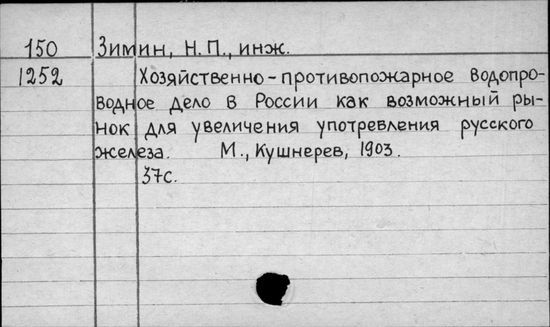 150 Зимин, Н.П., инж.
1252 Хозяйственно-противопожарное водопро-
водное дело в России как возможный ры-
нок для увеличения употребления русского
железа. М., Кушнерев, 1903.
37с.